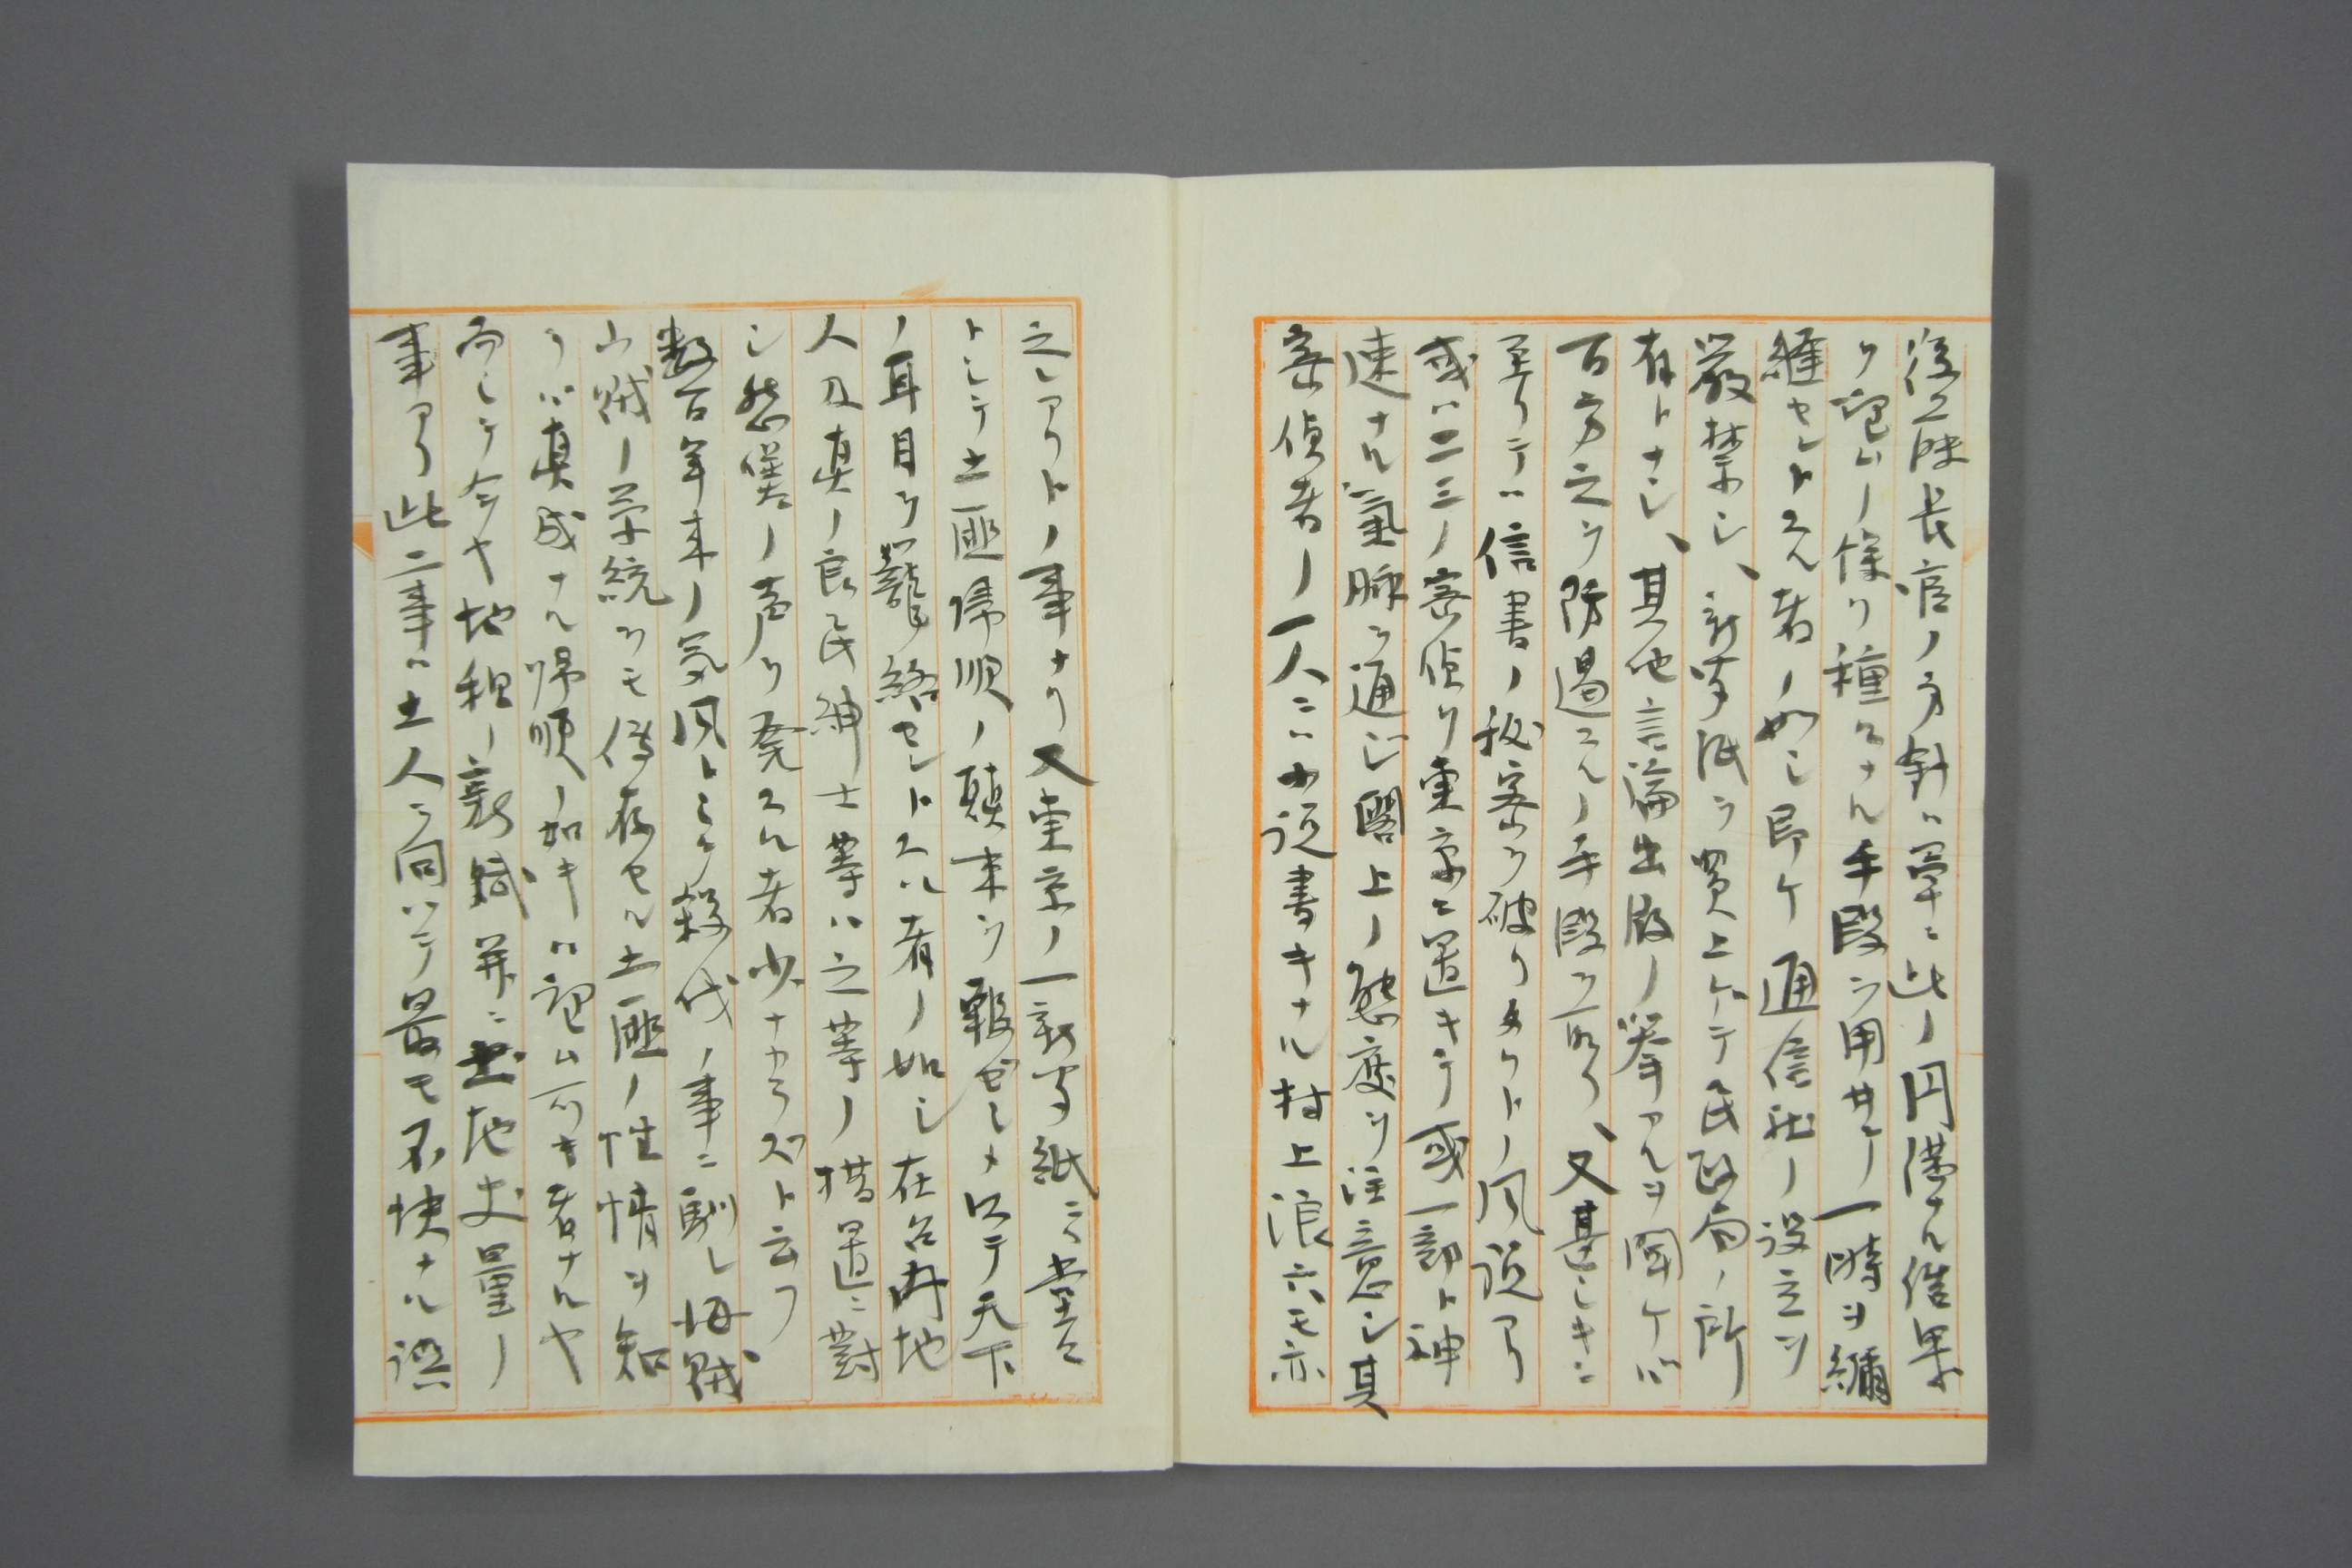 後藤長官ノ方針ハ単ニ此ノ円滑ナル結果
ヲ包ムノ様リ種々ナル手段ヲ用井テ一時ヲ繃
縫セントスル者ノ如シ即ケ通信社ノ設立ヲ
嚴禁シ、新聞紙ヲ買上ゲテ民政局ノ所
有トナシ、其他言論出版ノ挙アルヲ聞ケバ
百方之ヲ防遏スルノ手段ヲ取リ、又甚シキニ
至リテハ信書ノ秘密ヲ破リタリトノ風説アリ
或ハ二三ノ密偵リ東京ニ置キテ或一部ト神
速ナル氣脉ヲ通ジ閣上ノ態度ヲ注意シ其
密偵者ノ一人ニハ小説書キナル村上浪六モ亦
之レアリトノ事ナリ又東京ノ一新聞紙ニ堂々
トシテ土匪帰順ノ顛末ヲ報ゼシメ以テ天下
ノ耳目ヲ籠絡セントスル者ノ如シ在台内地
人及真ノ良民紳士等ハ之等ノ措置ニ對
シ怨嗟ノ声ヲ発スル者少ナカラズト云フ
数百年来ノ気風トシテ殺伐ノ事ニ馴レ海賊
山賊ノ系統ヲモ傳存セル土匪ノ性情ヲ知
ラバ真成ナル帰順ノ如キハ望ム可キ者ナルヤ
而シテ今ヤ地租ノ新賦并ニ土地丈量ノ
事アリ此二事ハ土人ニ向ツテ最モ不快ナル